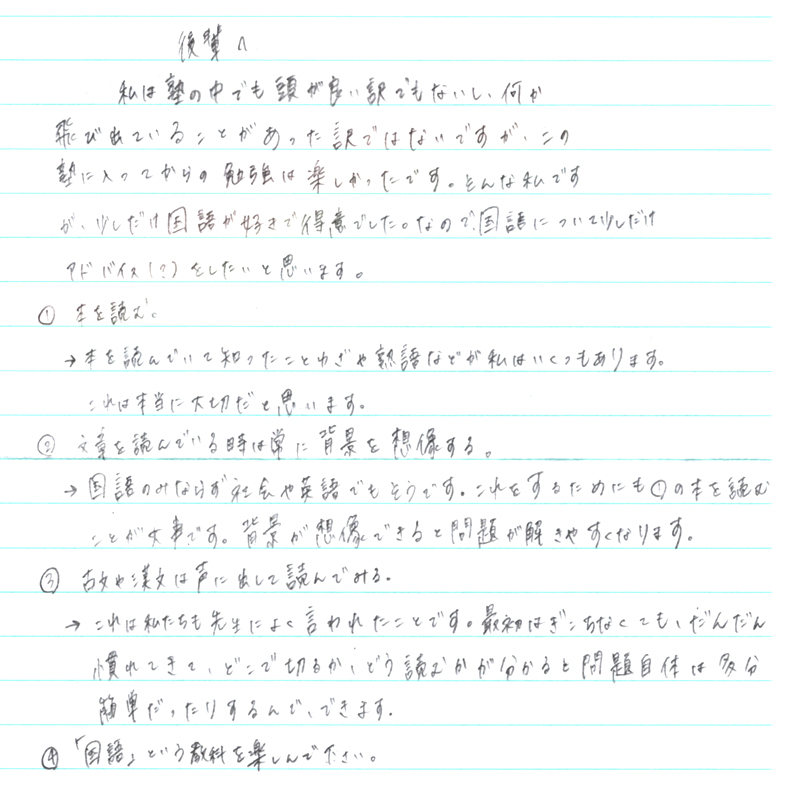 後輩へ
私は塾の中でも頭が良い訳でもないし、何か
飛び出ていることがあった訳ではないですが、この
塾に入ってからの勉強は楽しかったです。そんな私です
が、少しだけ国語が好きで得意でした。なので、国語について少しだけ
アドバイス(?)をしたいと思います。
① 本を読む。
→ 本を読んでいて知ったことわざや熟語などが私はいくつもあります。
これは本当に大切だと思います。
② 文章を読んでいる時は常に背景を想像する。
→ 国語のみならず社会や英語でもそうです。これをするためにも①の本を読む
ことが大事です。背景が想像できると問題が解きやすくなります。
③ 古文や漢文は声に出して読んでみる。
→ これは私たちも先生によく言われたことです。最初はぎこちなくても、だんだん
慣れてきて、どこで切るか、どう読むかが分かると問題自体は多分
簡単だったりするんで、できます。
④ 「国語」という教科を楽しんで下さい。